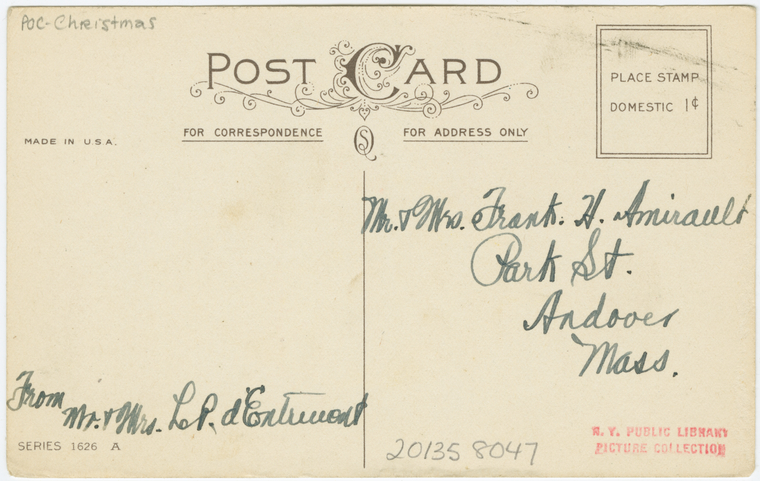 POC-Christmas
POST CARD
PLACE STAMP
DOMESTIC 1¢
MADE IN U.S.A.
FOR CORRESPONDENCE
FOR ADDRESS ONLY
Mr. & Mrs. Frank. H. Amirault
Park St.
Andover
Mass.
From
Mr. & Mrs. L. P. d'Entremont
SERIES 1626 A
20135 8047
N. Y. PUBLIC LIBRARY
PICTURE COLLECTION